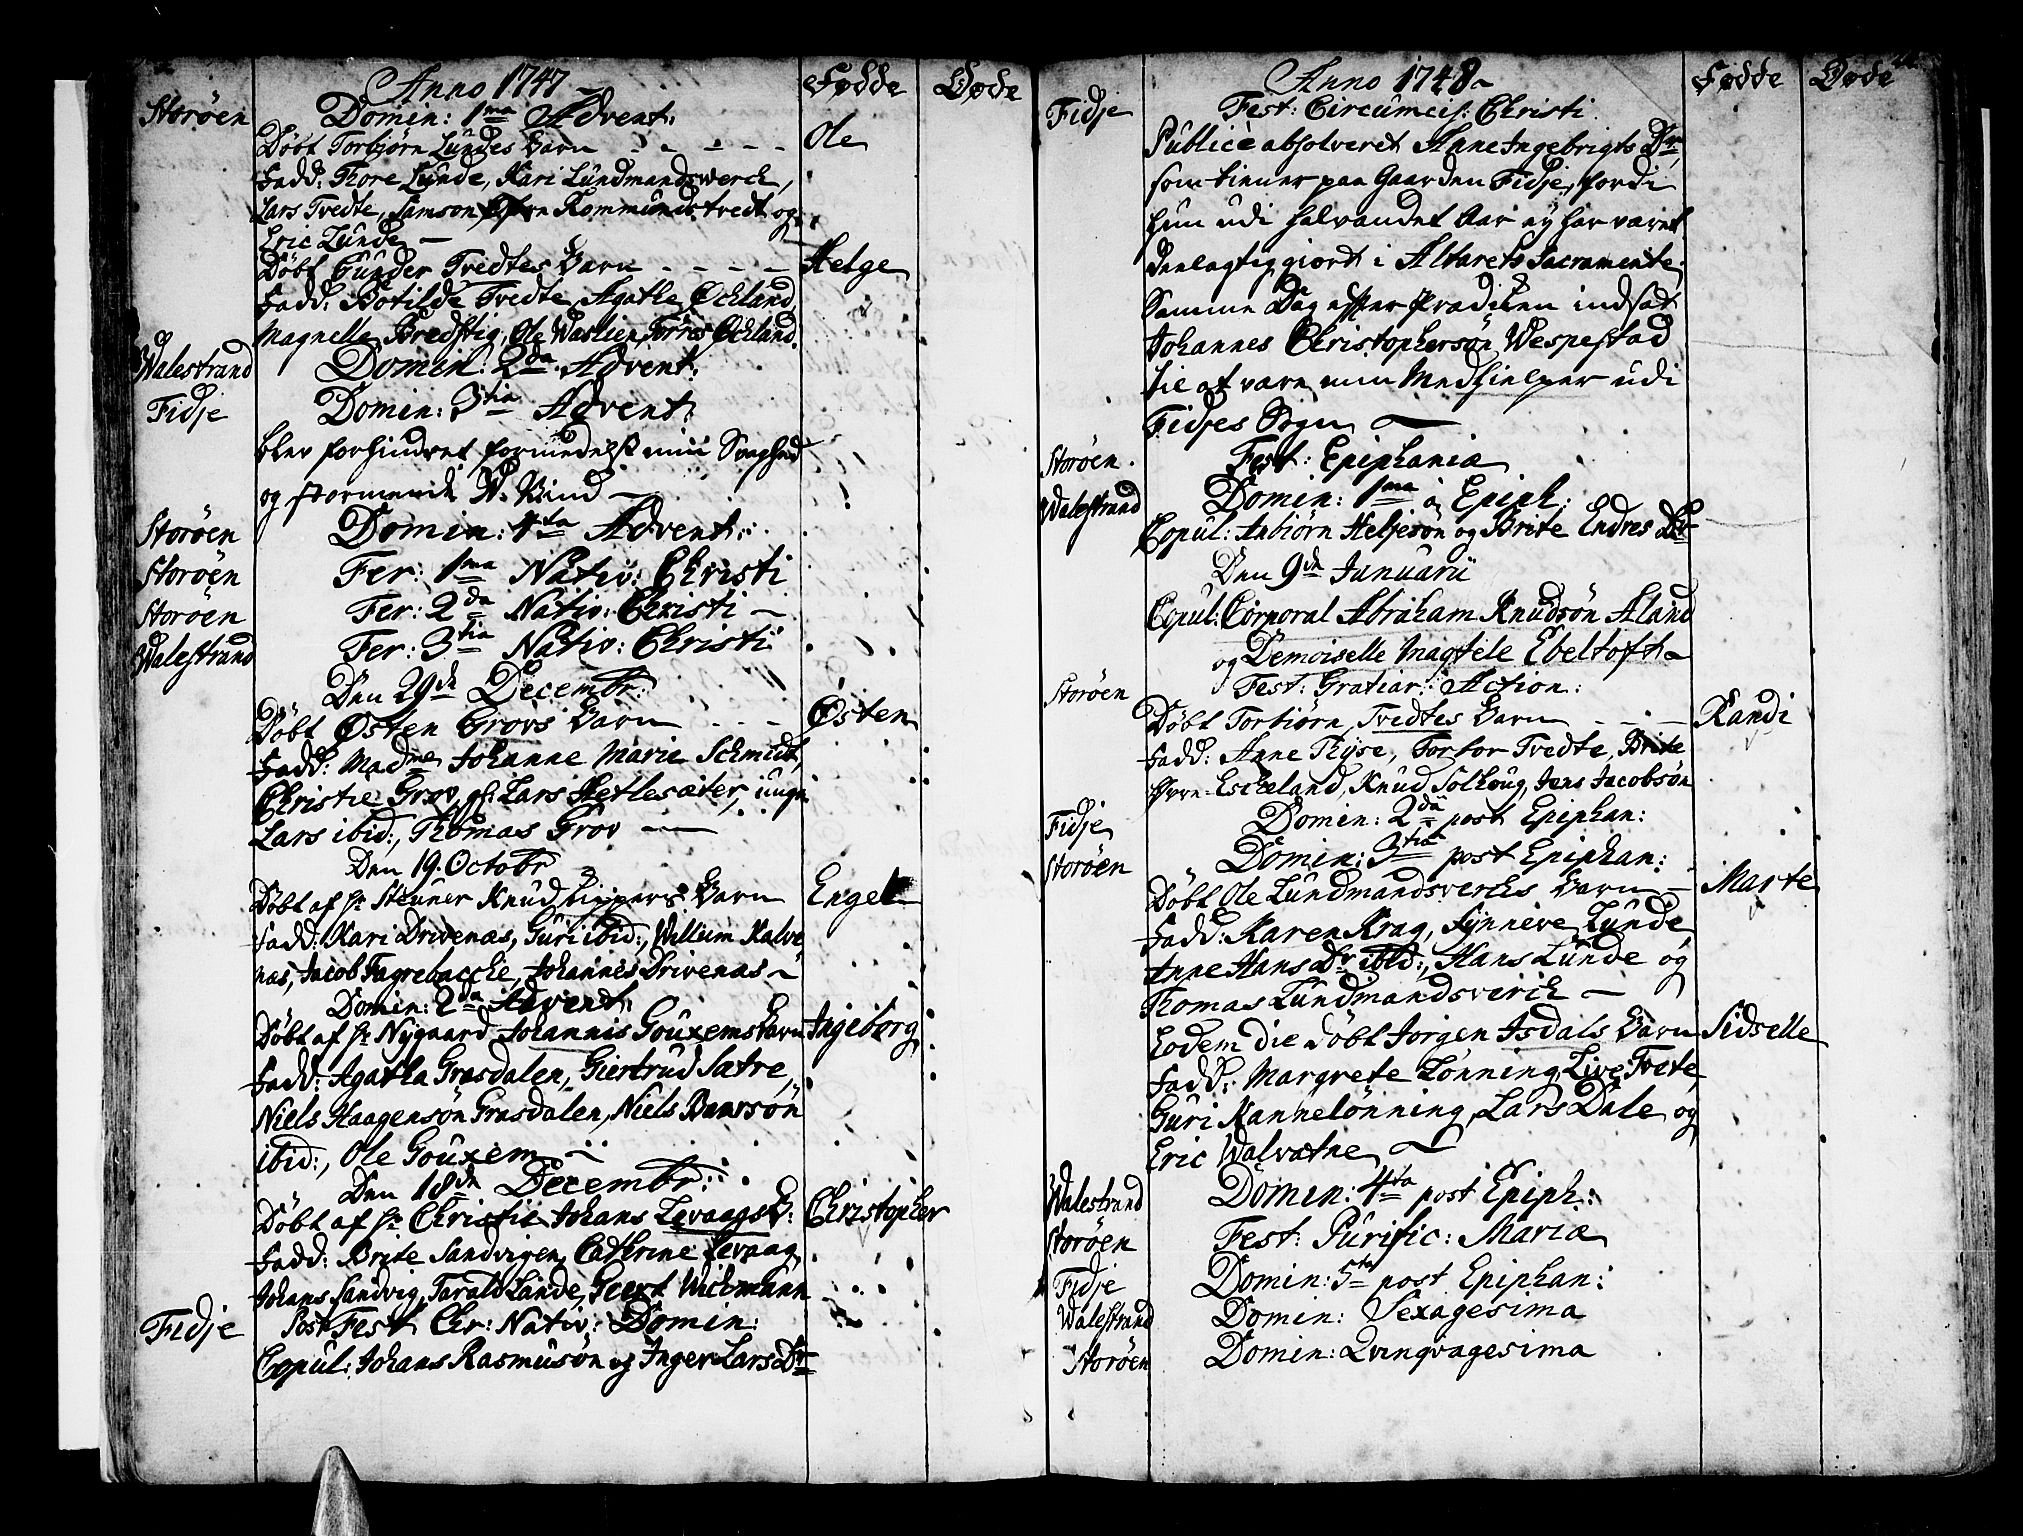 Anno 1747 Fødde Døde
Storøen Domin: 1ma Advent:
Døbt Torbjørn Lundes Barn Ole
Fadd: Thore Lunde, Kari Lundmandswerck,
Lars Tredte, Samson Rommundstvedt og
Eric Lunde
Døbt Gunder Tredtes Barn Helge
Fadd: Botilde Tredte, Agathe Ockland,
Magnelle Bredstig, Ole Waslien, Torris Ockland.
Walestrand Domin: 2da Advent:
Fidje Domin: 3tia Advent:
blev forhindret formedelst min Svaghed
og stormende W. Vind
Storøen Domin: 4ta Advent:
Storøen Fer: 1ma Nativ: Christi
Storøen Fer: 2da Nativ: Christi
Walestrand Fer: 3tia Nativ: Christi
Den 29de Decembr:
Døbt Østen Grovs Barn Østen
Fadd: Madme Johanne Marie Schmidt,
Christie Grov, gl: Lars Hetlesæter, unge
Lars ibid:, Thomas Grov
Den 19. Octobr
Døbt af Hr Steuner Knud Barn Engel
Fadd: Kari Drivenas, Guri ibid:, Willum Kalve
nas, Jacob Fagrebacche, Johannes Drivenas
Domin: 2da Advent:
Døbt af Hr Nygaard Johannis Gouxems Barn Ingeborg
Fadd: Agatha Grasdalen, Giertrud Satre,
Niels Haagensøn Grasdalen, Niels Baarsøn
ibid:, Ole Gouxem
Den 18de Decembr:
Døbt af Hr Christie Johans Levaags B: Christopher
Fadd: Brite Sandvigen, Cathrine Levaag,
Johans Sandvig, Tarald Lande, Geert Wichmann
Fidje Post Fest Chr: Nativ: Domin:
Copul: Johans Rasmusøn og Inger Lars Dr
Anno 1748 Fødde Døde
Fidje Fest: Circumcis: Christi
Publicè absolveret Anne Ingebrigts Dr,
som tiener paa Gaarden Fidje, fordi
hun udi halvandet Aar ey har været
deelagtiggiort i Altarets Sacramente.
Samme Dag efter Prædiken indsat
Johannes Christophersøn Wespestad
til at være min Medhielper udi
Fidjes Sogn
Storøen Fest: Epiphaniæ
Walestrand Domin: 1ma à Epiph:
Copul: Anbiørn Heljesøn og Brite Endres Dr
Den 9de Januarii
Copul: Corporal Abraham Knudsøn Aland
og Demoiselle Magtele Ebeltoft
Storøen Fest: Gratiar: Action:
Døbt Torbiørn Tredtes Barn Randi
Fadd: Anne Thyse, Tortor Tredte, Brite
Øvre-Eskeland, Knud Solhoug, Jens Jacobsøn
Fidje Domin: 2da post Epiphan:
Storøen Domin: 3tia post Epiphan:
Døbt Ole Lundmandsvercks Barn Marte
Fadd: Karen Krag, Synneve Lunde
Anne Hans Dr ibid:, Hans Lunde og
Thomas Lundmandsverck
Eodem die døbt Jorgen Isdals Barn Sidselle
Fadd: Margrete Lønning, Live Trete,
Guri Kannelønning, Lars Dale og
Eric Walvatne
Walestrand Domin: 4ta post Epiph:
Storøen Fest: Purific: Mariæ
Fidje Domin: 5ta post Epiphan:
Walestrand Domin: Sexagesima
Storøen Domin: Qvinqvagesima